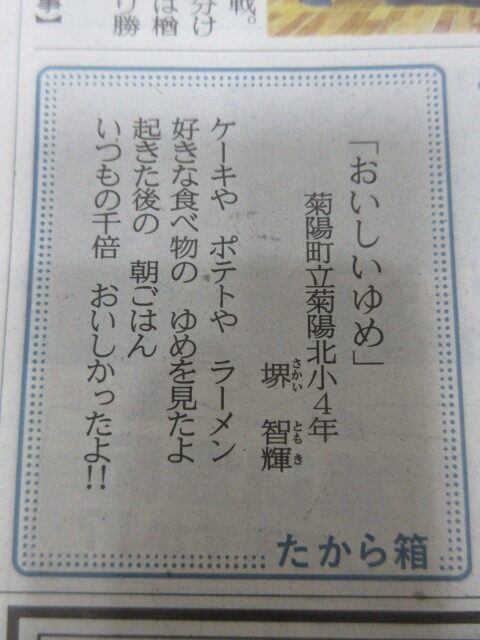 戦。
分け
は楢
り勝
事】
「おいしいゆめ」
菊陽町立菊陽北小4年
堺 智輝
さかい ともき
ケーキや ポテトや ラーメン
好きな食べ物の ゆめを見たよ
起きた後の 朝ごはん
いつもの千倍 おいしかったよ!!
たから箱